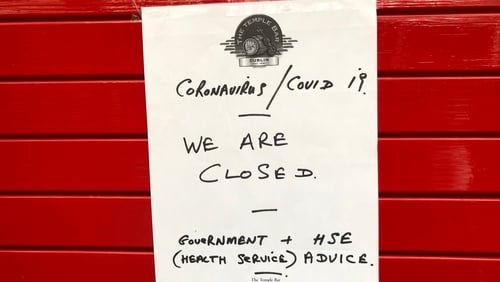 THE TEMPLE BAR
DUBLIN
CORONAVIRUS / COVID 19.
WE ARE
CLOSED.
GOVERNMENT + HSE
(HEALTH SERVICE) ADVICE.
The Temple Bar